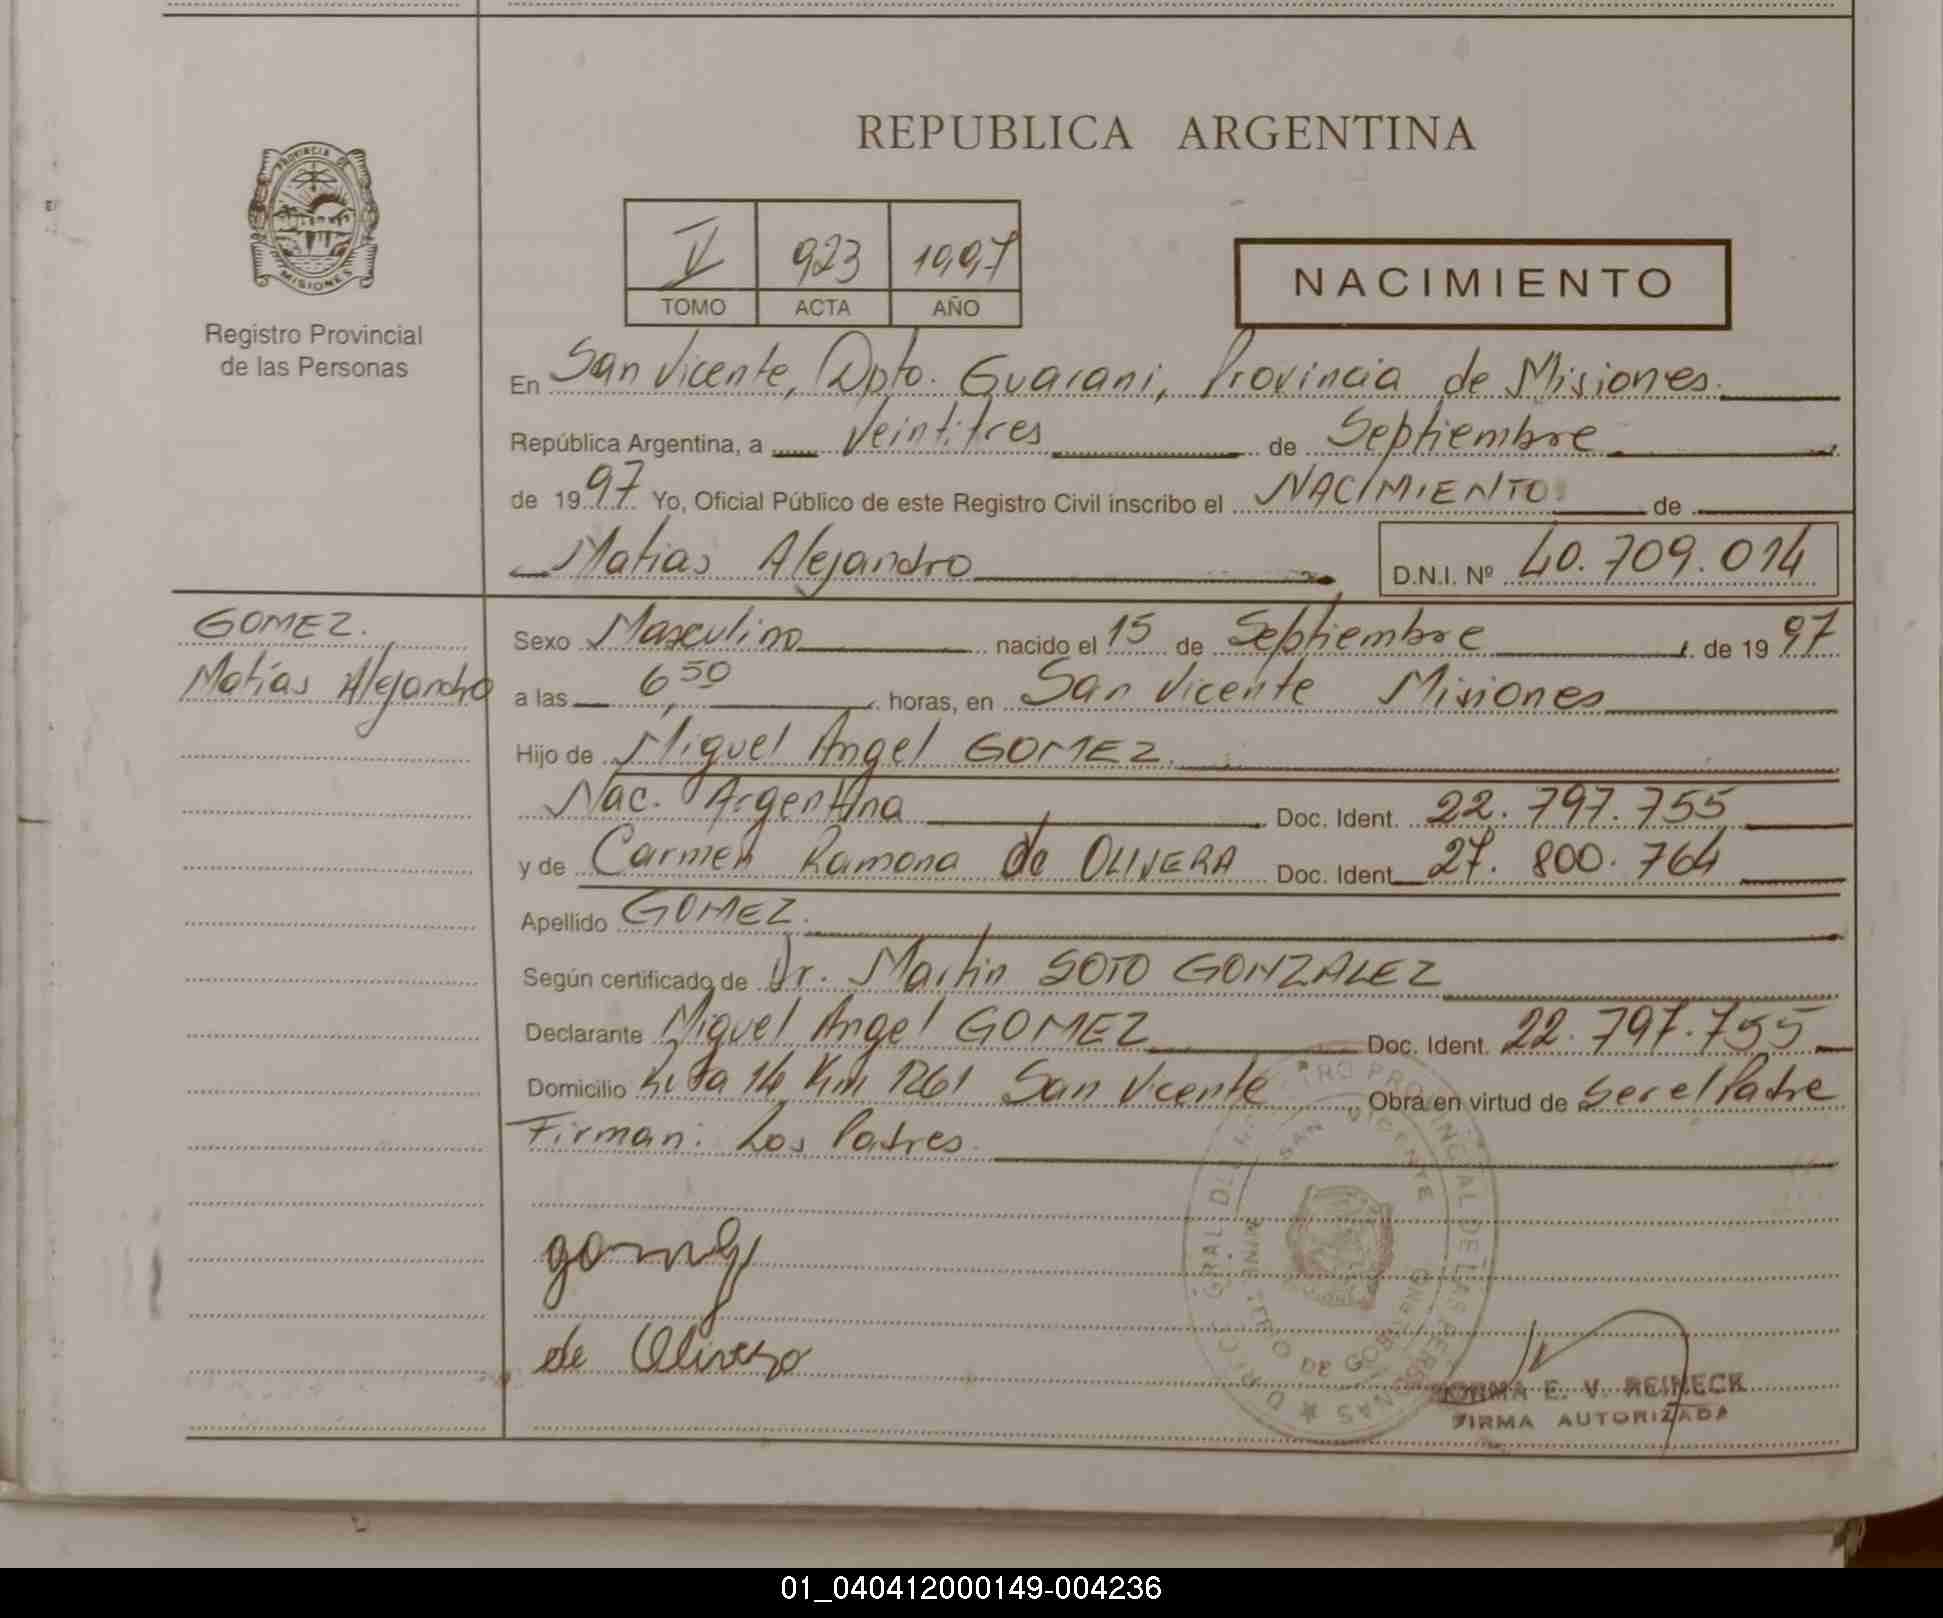 REPUBLICA ARGENTINA
PROVINCIA DE
MISIONES
Registro Provincial
de las Personas
V 923 1997
TOMO ACTA AÑO
NACIMIENTO
En San Vicente, Dpto. Guarani, Provincia de Misiones.
República Argentina, a Veintitres de Septiembre
de 1997 Yo, Oficial Público de este Registro Civil inscribo el NACIMIENTO de
Matias Alejandro D.N.I. Nº 40.709.014
GOMEZ.
Matías Alejandro
Sexo Masculino nacido el 15 de Septiembre de 1997
a las 6,50 horas, en San Vicente Misiones
Hijo de Miguel Angel GOMEZ.
Nac. Argentina Doc. Ident. 22.797.755
y de Carmen Ramona de OLIVERA Doc. Ident. 27.800.764
Apellido GOMEZ.
Según certificado de Dr. Martin SOTO GONZALEZ
Declarante Miguel Angel GOMEZ Doc. Ident. 22.797.755
Domicilio Ruta 14 Km 1261 San Vicente Obra en virtud de ser el Padre
Firman: Los Padres.
SAN VICENTE
gomez
de Olivera
NORMA E. V. REINECK
FIRMA AUTORIZADA
01_040412000149-004236